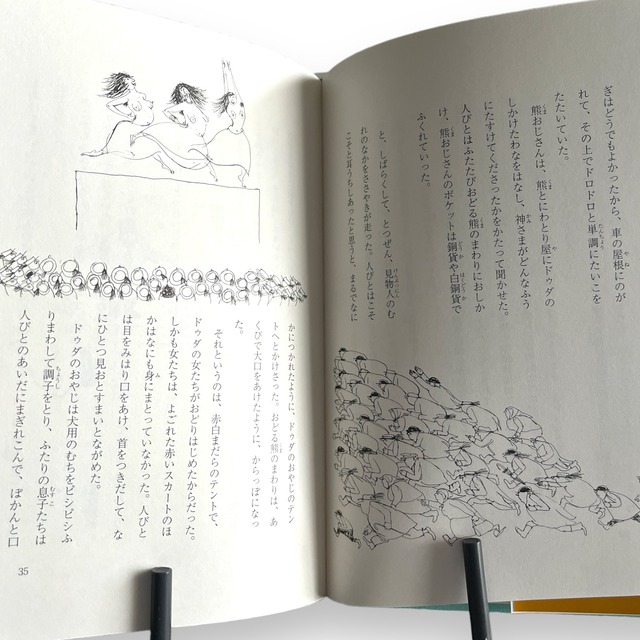 ぎはどうでもよかったから、車の屋根にのが
れて、その上でドロドロと単調にたいこを
たたいていた。
熊おじさんは、熊とにわとり屋にドゥダの
しかけたわなをはなし、神さまがどんなふう
にたすけてくださったかをかたって聞かせた。
人びとはふたたびおどる熊のまわりにおしか
け、熊おじさんのポケットは銅貨や白銅貨で
ふくれていった。
と、しばらくして、とつぜん、見物人のむ
れのなかをささやきが走った。人びとはこそ
こそと耳うちしあったと思うと、まるでなに
かにつかれたように、ドゥダのおやじのテン
トへとかけさった。おどる熊のまわりは、あ
くびで大口をあけたように、からっぽになっ
た。
それというのは、赤白まだらのテントで、
ドゥダの女たちがおどりはじめたからだった。
しかも女たちは、よごれた赤いスカートのほ
かはなにも身にまとっていなかった。人びと
は目をみはり口をあけ、首をつきだして、な
にひとつ見おとすまいとながめた。
ドゥダのおやじは犬用のむちをピシピシふ
りまわして調子をとり、ふたりの息子たちは
人びとのあいだにまぎれこんで、ぽかんと口
35